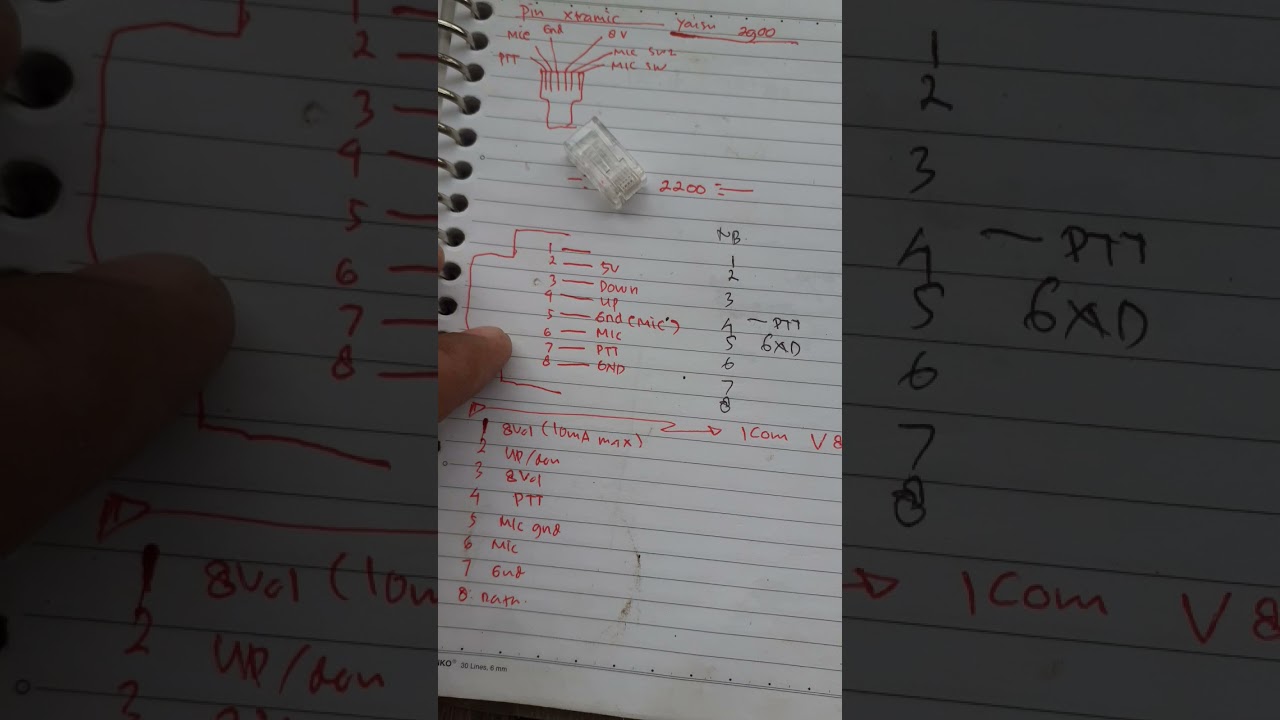 Pin xtramic Yaisu 2900
MIC Gnd 8V
MIC SW2
PTT MIC SW
2200
NB.
1 1
2 5V 2
3 Down 3
4 UP
5 Gnd (Mic) 4 — PTT
6 MIC 5 GND
7 PTT 6
8 GND 7
8
ICom V8
1 8Vol (10mA max)
2 UP/don
3 8Vol
4 PTT
5 MIC gnd
6 MIC
7 Gnd
8.
30 Lines, 6 mm